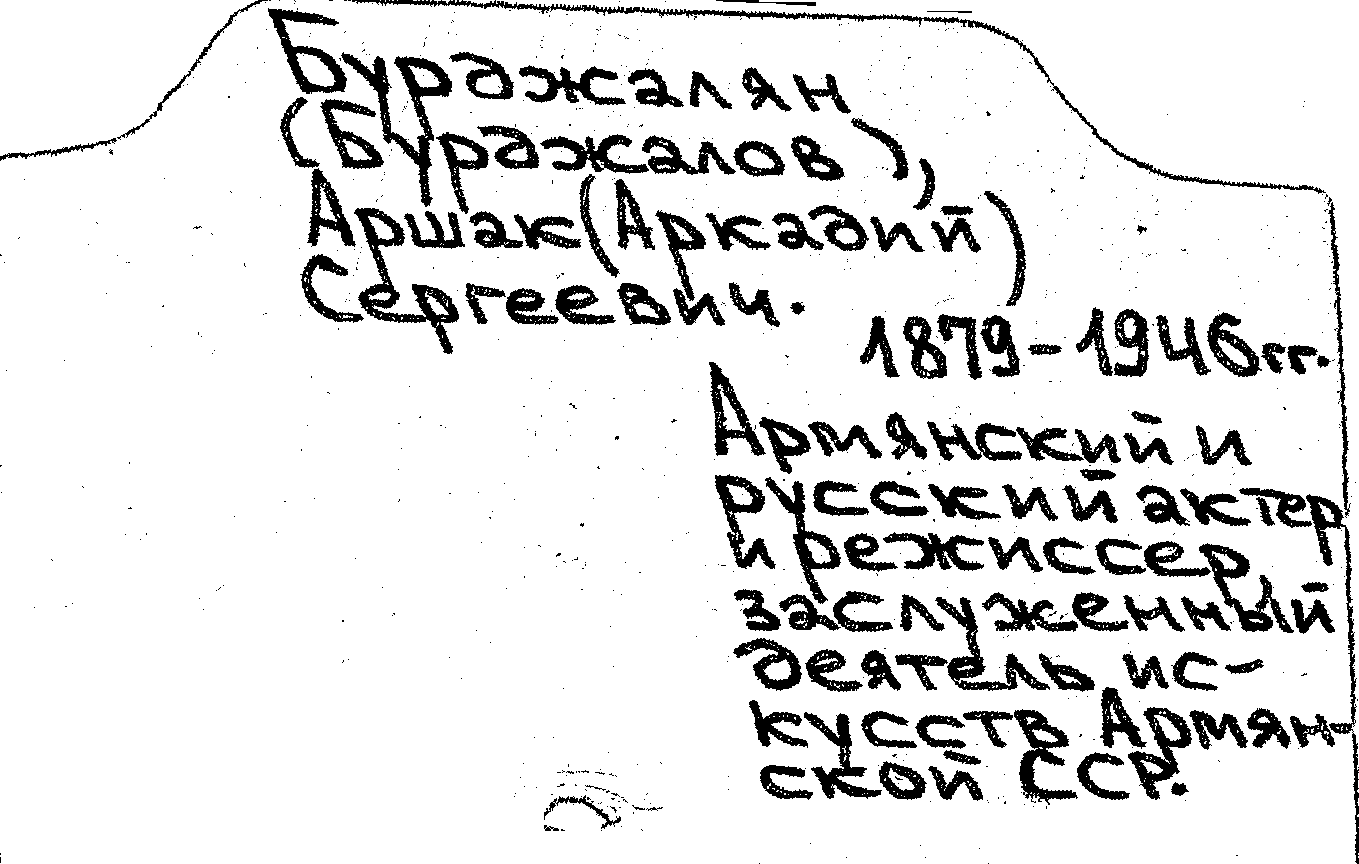 Бурджалян
(Бурджалов),
Аршак (Аркадий)
Сергеевич.
1879-1946гг.
Армянский и
русский актер
и режиссер,
заслуженный
деятель ис-
кусств Армян-
ской ССР.